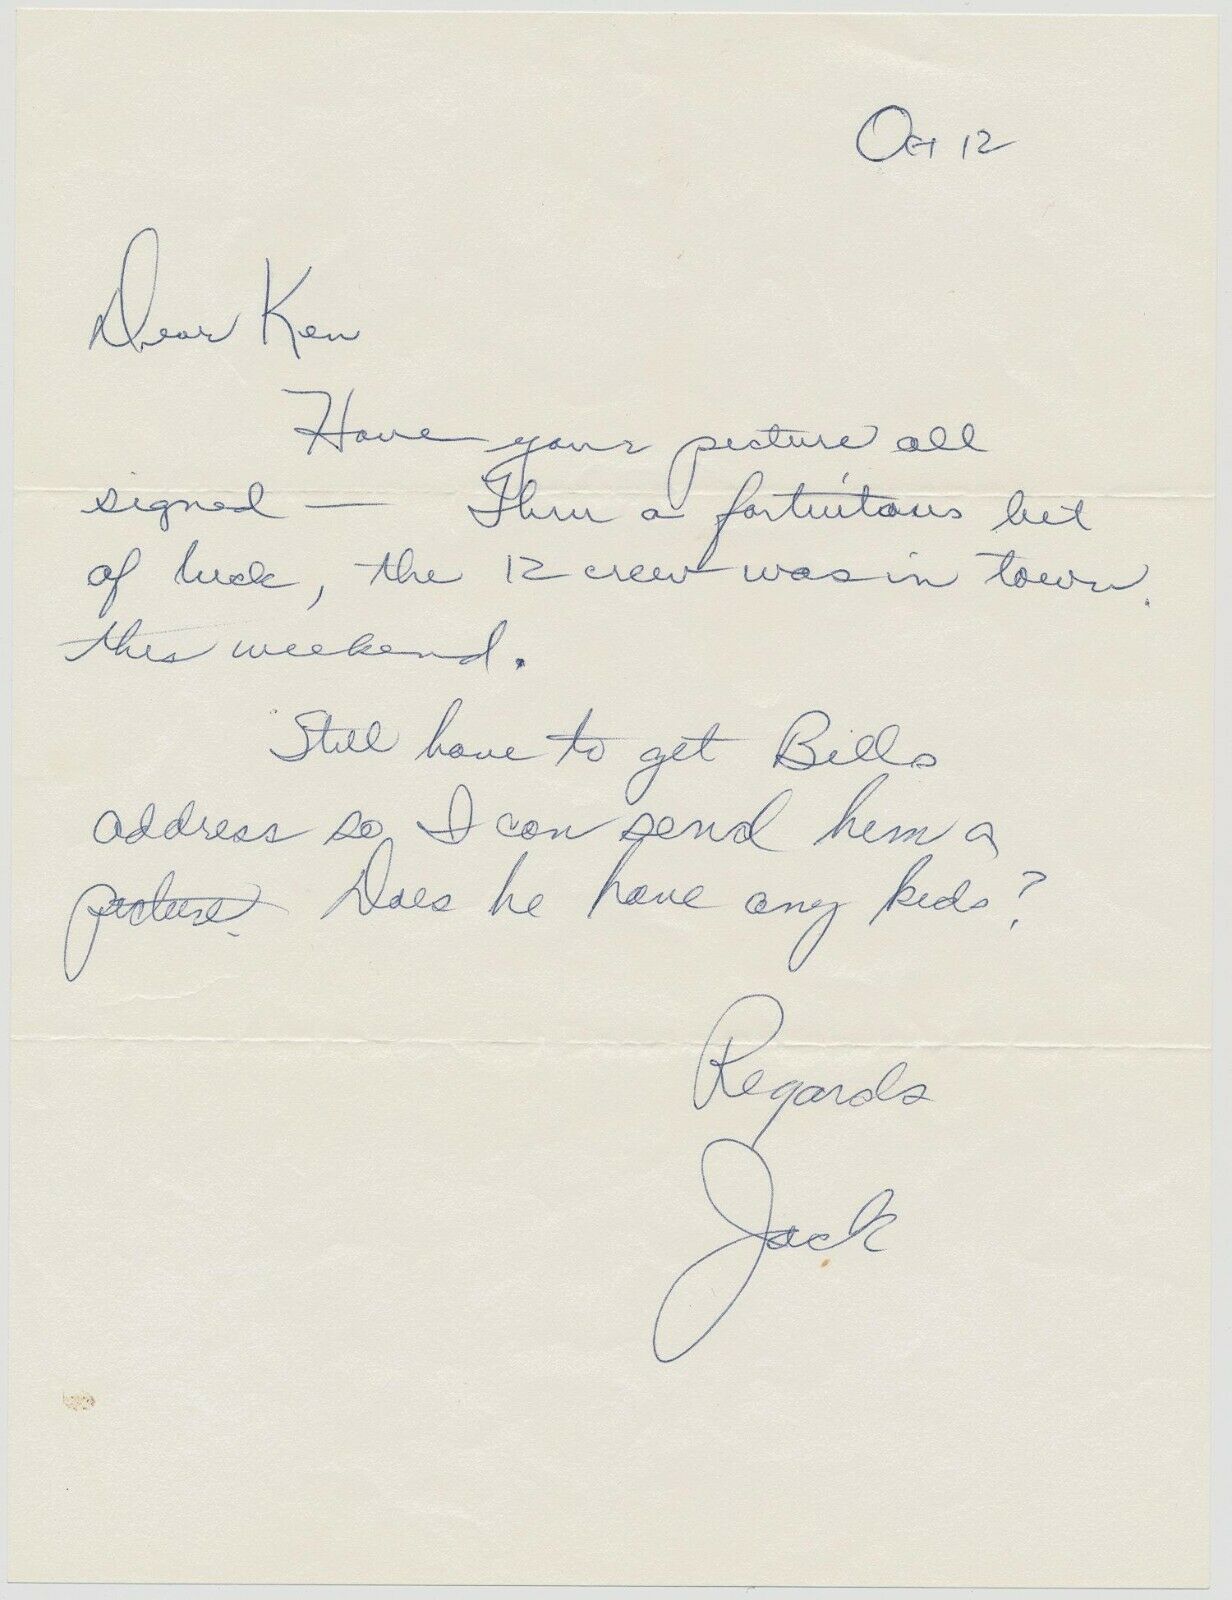 Oct 12
Dear Ken
Have your picture all
signed — Thru a fortuitous bit
of luck, the 12 crew was in town.
this weekend.
Still have to get Bills
address so I can send him a
picture. Does he have any kids?
Regards
Jack